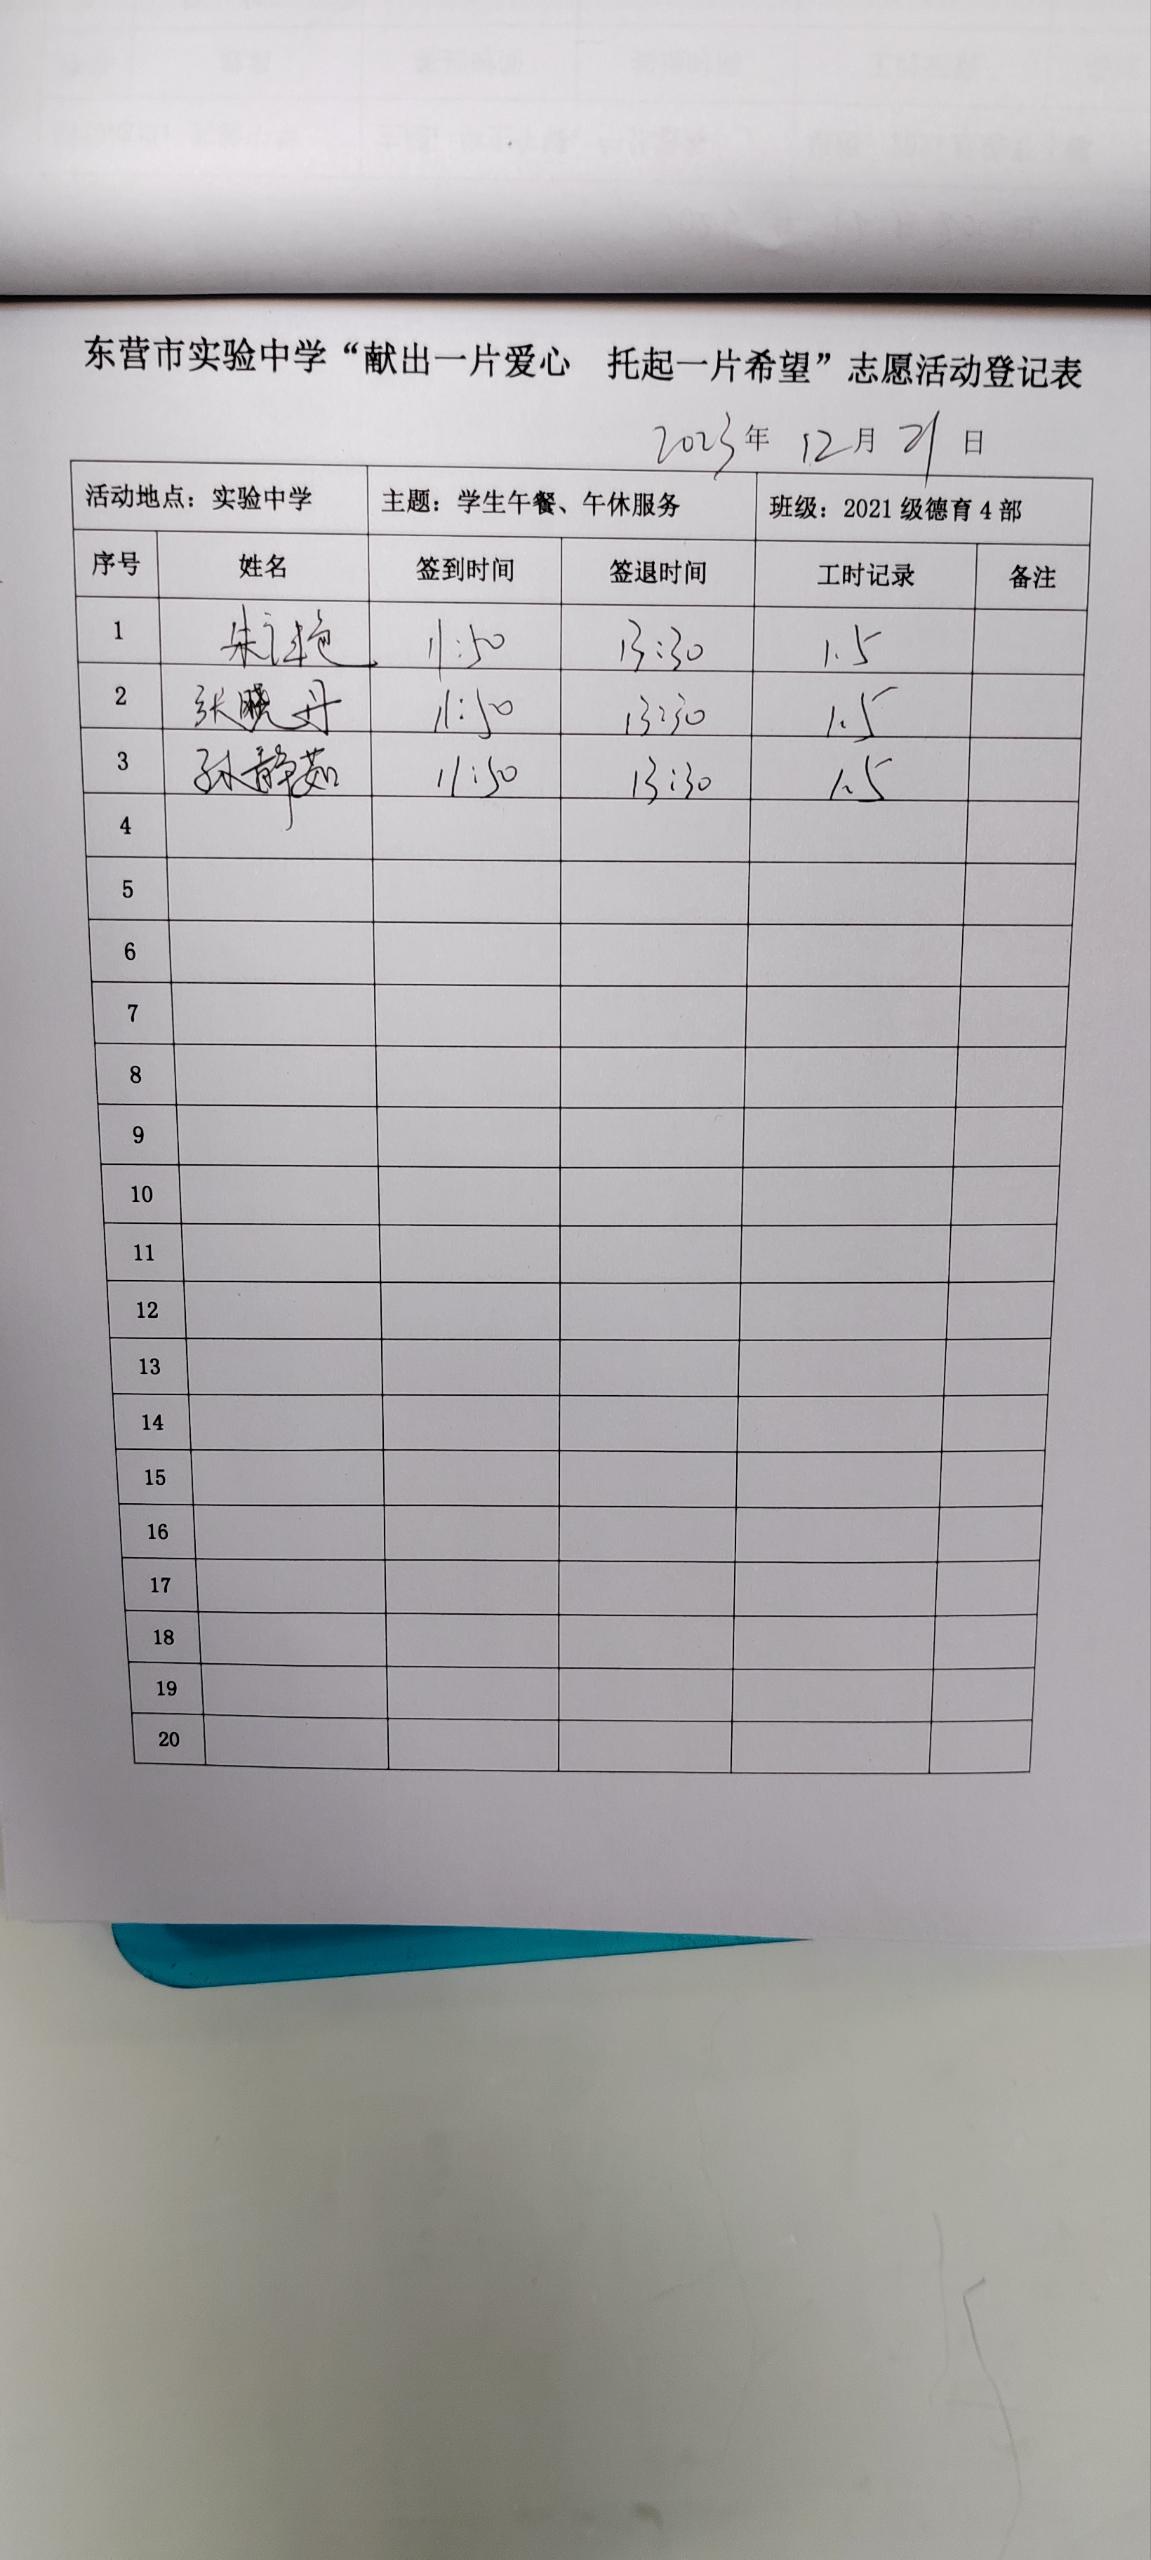 东营市实验中学“献出一片爱心 托起一片希望”志愿活动登记表
2023年 12月 21日
活动地点：实验中学 主题：学生午餐、午休服务 班级：2021级德育4部
序号 姓名 签到时间 签退时间 工时记录 备注
1 朱 艳 11:50 13:30 1.5
2 张晓丹 11:50 13:30 1.5
3 孙静茹 11:50 13:30 1.5
4
5
6
7
8
9
10
11
12
13
14
15
16
17
18
19
20